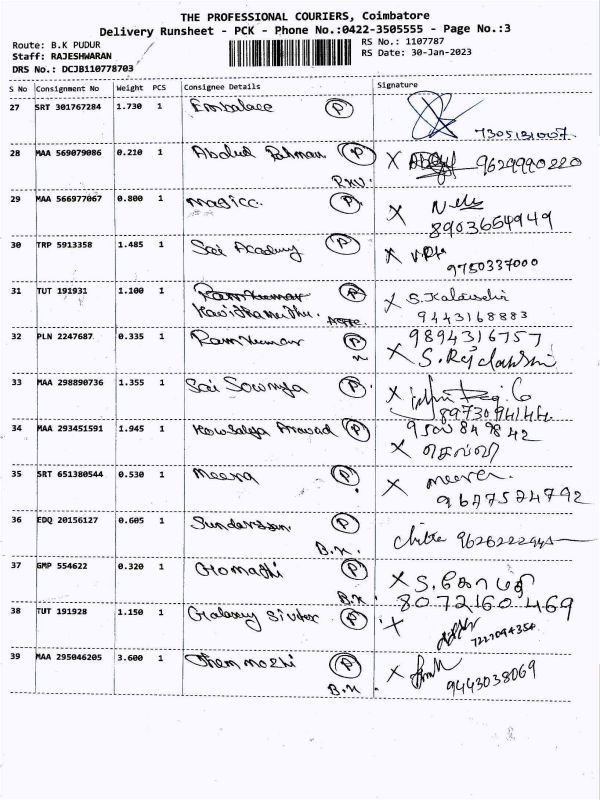 THE PROFESSIONAL COURIERS, Coimbatore
Delivery Runsheet - PCK - Phone No.:0422-3505555 - Page No.:3
Route: B.K PUDUR
RS No.: 1107787
Staff: RAJESHWARAN
RS Date: 30-Jan-2023
DRS No.: DCJB110778703
S No Consignment No Weight PCS Consignee Details Signature
27 SRT 301767284 1.730 1 Embalace P
7305131007
28 MAA 569079086 0.210 1 Abdul Rahman P 9629990220
29 MAA 566977067 0.800 1 magicc. P
8903654949
30 TRP 5913358 1.485 1 Sai Academy P
9750337000
31 TUT 191931 1.100 1 Ramkumar S. Kalaiselvi
9443168883
32 PLN 2247687 0.335 1 Ramkumar P 9894316757
33 MAA 298890736 1.355 1 Sai Sowmya P
8973094144
34 MAA 293451591 1.945 1 Kowsalya Aravind P 9500849842
செல்வி
35 SRT 651380544 0.530 1 meera P meera
9677524792
36 EDQ 20156127 0.605 1 Sundarssan P Chitra
B.K.
37 GMP 554622 0.320 1 Gomathi P S. கோமதி
B.K. 8072160469
38 TUT 191928 1.150 1 Galaxy P
39 MAA 295046205 3.600 1 Then mozhi P
B.K. 9443038069